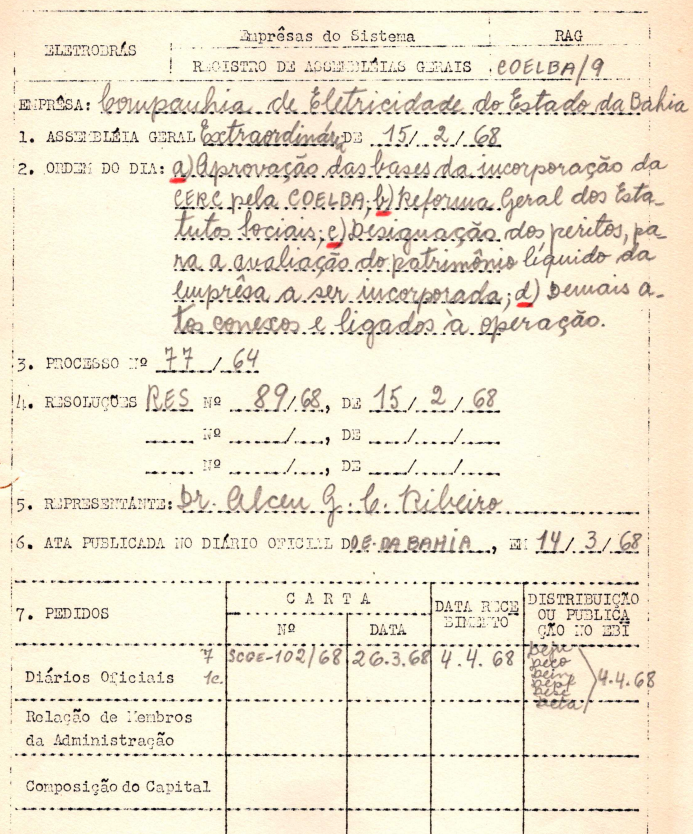 ELETROBRÁS
Emprêsas do Sistema
RAG
REGISTRO DE ASSEMBLÉIAS GERAIS
COELBA/9
EMPRÊSA: Companhia de Eletricidade do Estado da Bahia
1. ASSEMBLÉIA GERAL Extraordinária DE 15/2/68
2. ORDEM DO DIA: a) Aprovação das bases da incorporação da
CERC pela COELBA; b) Reforma Geral dos Esta-
tutos Sociais; c) Designação dos peritos, pa-
ra a avaliação do patrimônio líquido da
emprêsa a ser incorporada; d) Demais a-
tos conexos e ligados à operação.
3. PROCESSO Nº 77/64
4. RESOLUÇÕES RES Nº 89/68, DE 15/2/68
Nº ..../...., DE ..../..../....
Nº ..../...., DE ..../..../....
5. REPRESENTANTE: Dr. Alceu G. C. Ribeiro
6. ATA PUBLICADA NO DIÁRIO OFICIAL DO E. DA BAHIA, EM 14/3/68
7. PEDIDOS
CARTA
Nº
DATA
DATA RECE
BIMENTO
DISTRIBUIÇÃO
OU PUBLICA
ÇÃO NO EBI
Diários Oficiais
7
1c.
SCGE-102/68
26.3.68
4.4.68
4.4.68
Relação de Membros
da Administração
Composição do Capital